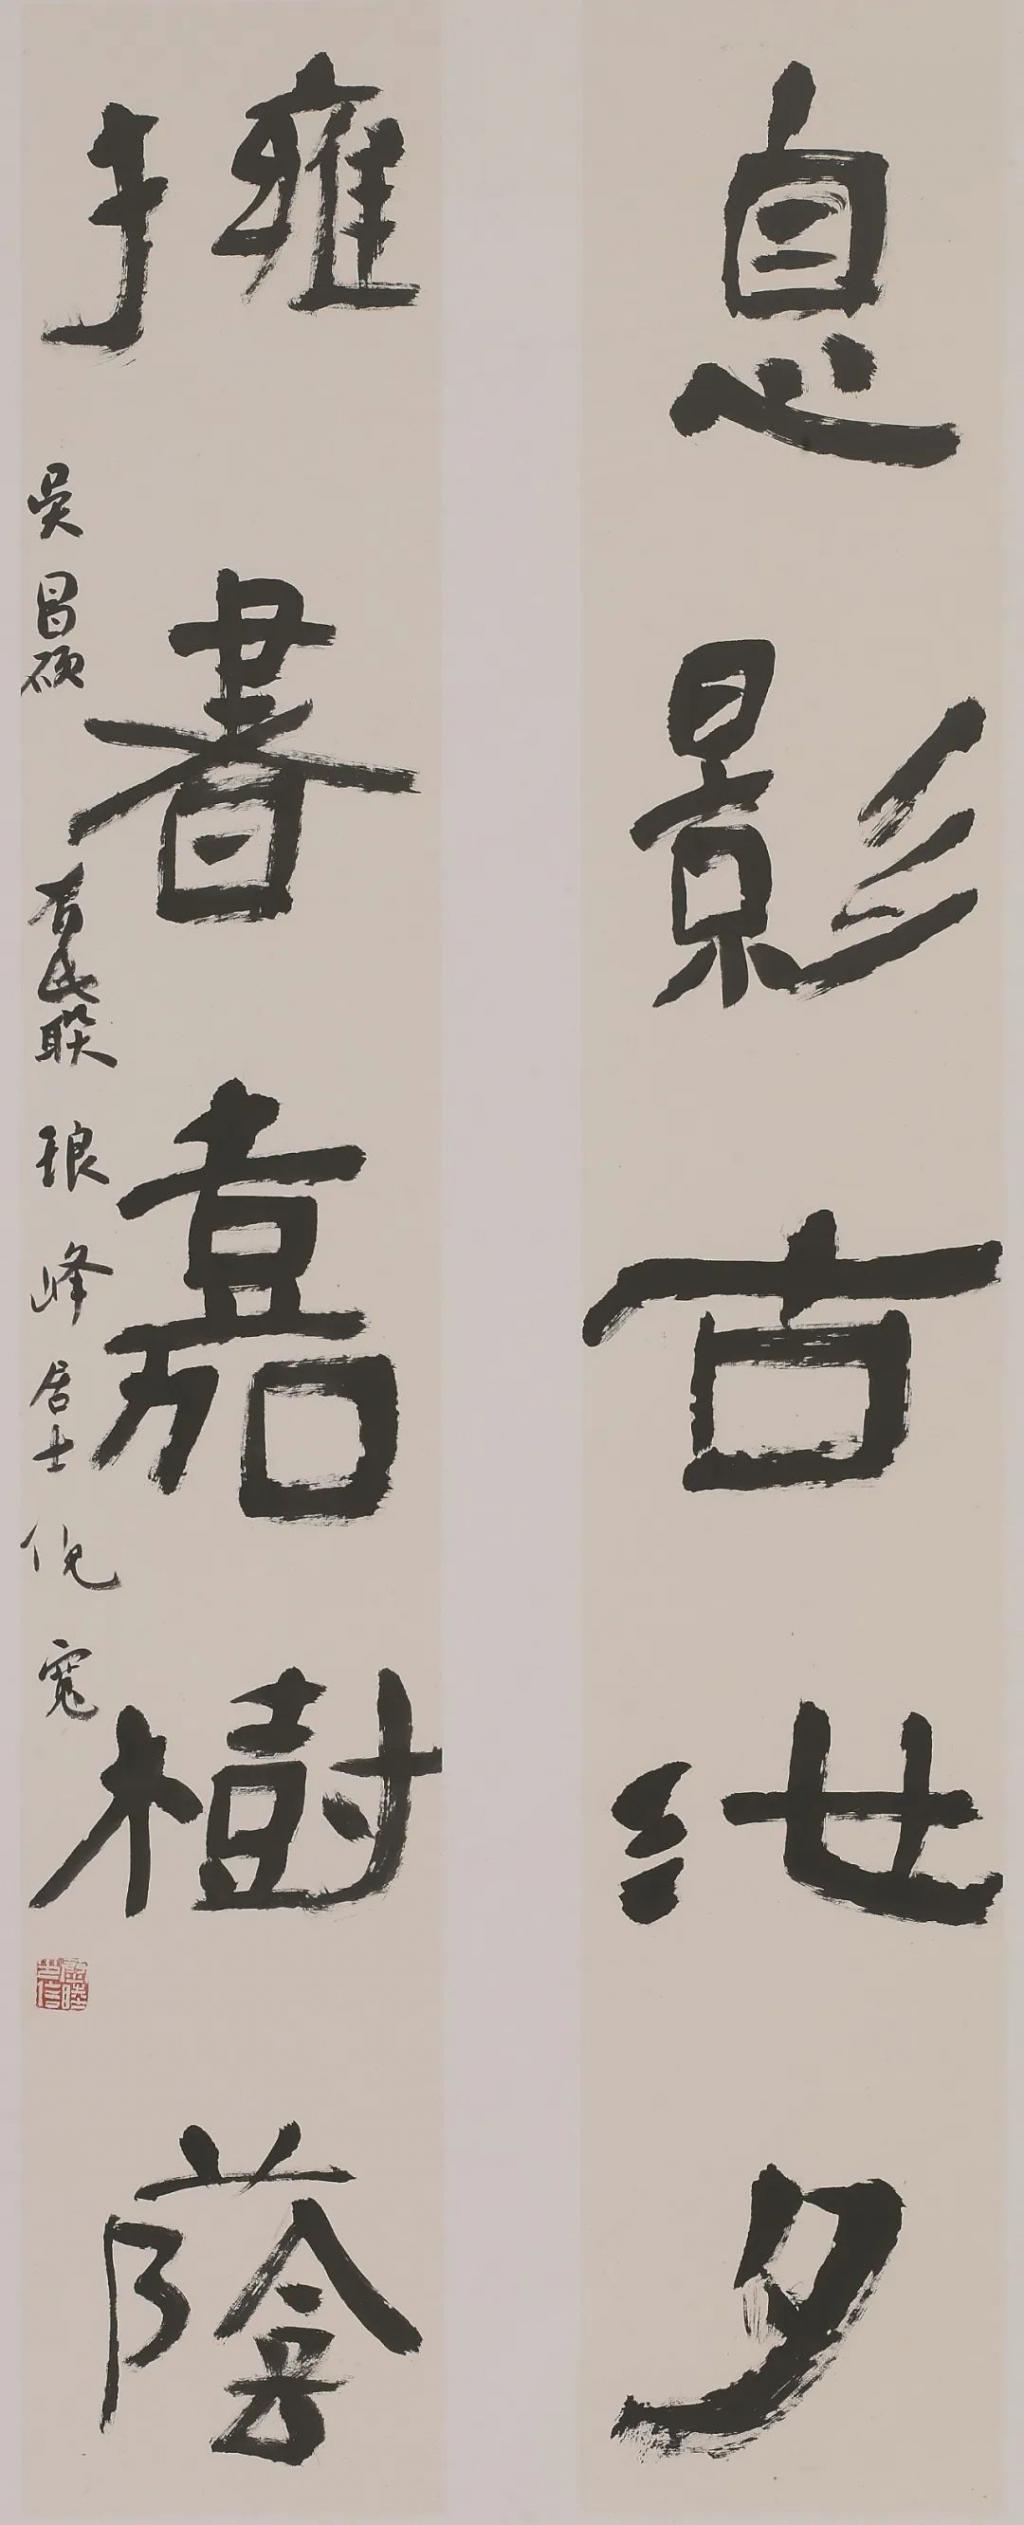 息影古沙夕
擁書嘉樹蔭
吳昌碩有此聯琅峰居士倪寬